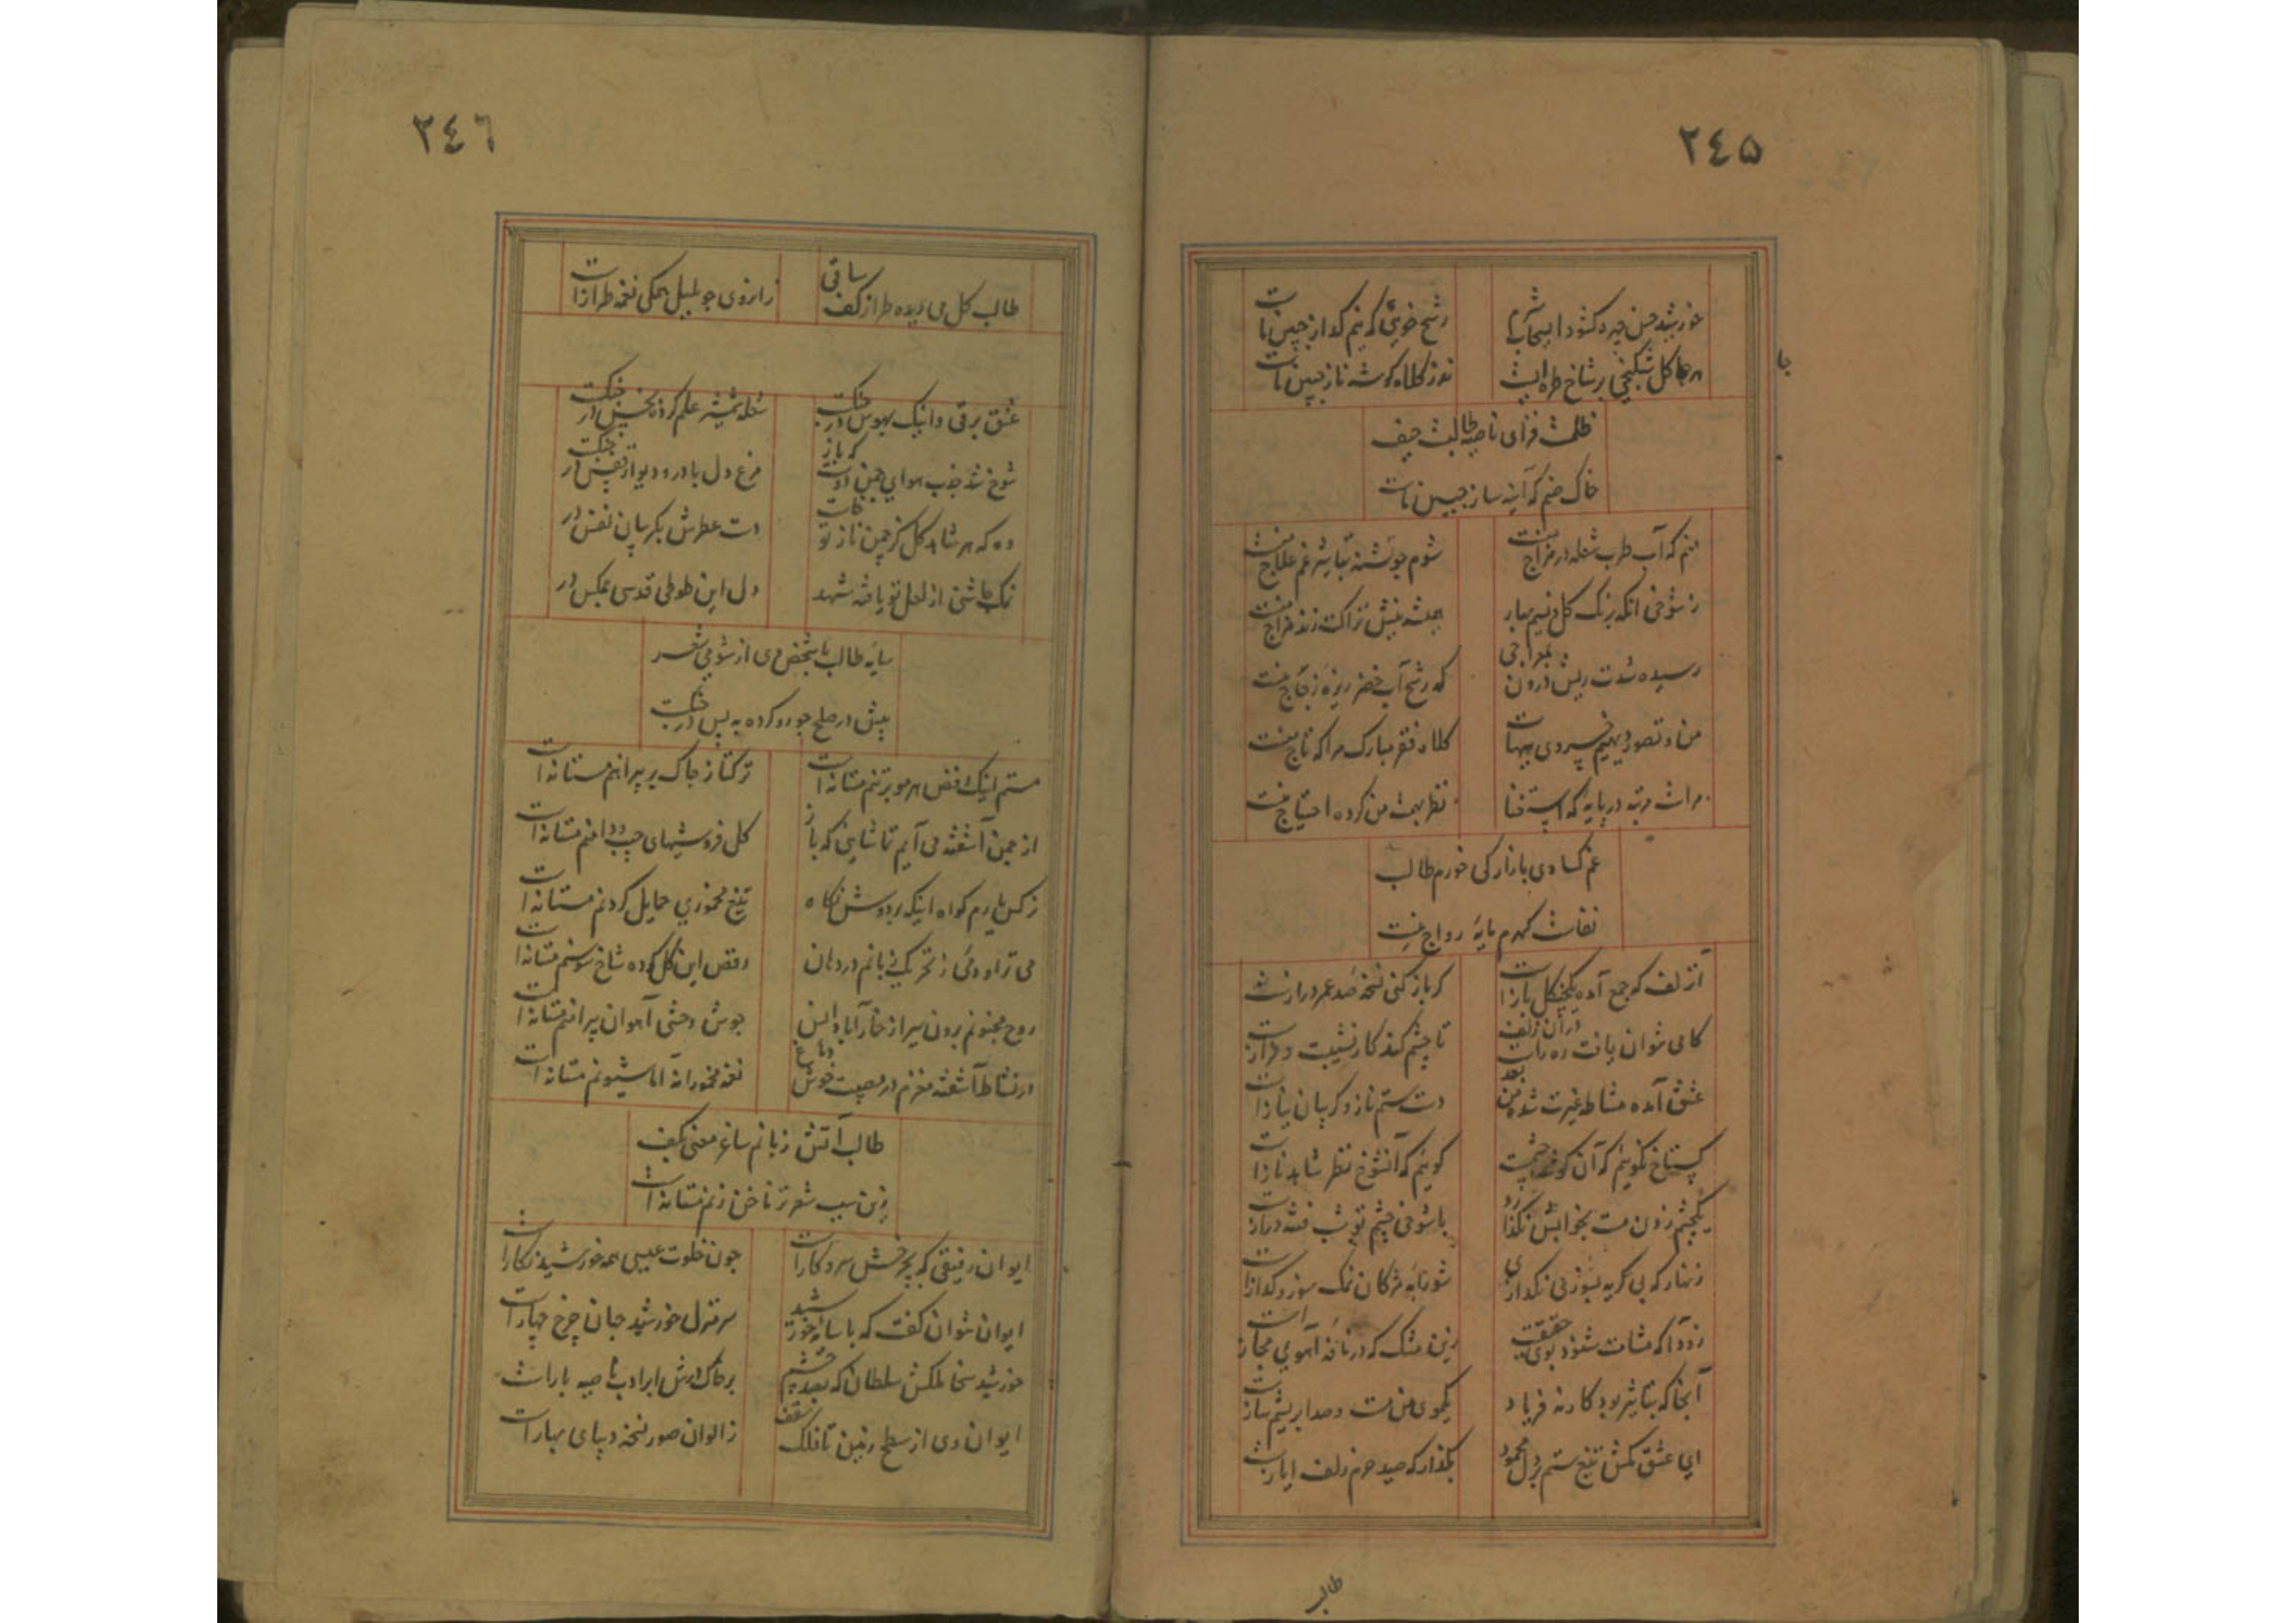 ۲۴۵
خورشید حسن چهره کشود از سحاب شرم
رشح خوی که بنم کداز جبین ماست
هر جا کل شکنجی بر شاخ طره ایست
نذر کلاه کوشه ناز جبین ماست
ظلمت فزای ناصیه طالبت حیف
خاک صنم که آینه ساز جبین ماست
منم که آب طرب شعله در مزاج منست
شوم چو تشنه تباشیر غم علاج منست
ز شوخی انکه برنک کل و نسیم بهار
همیشه نیش نزاکت زند مزاج منست
رسیده شدت ریش درون بجراحی
که رشح آب خضر ریزه زجاج منست
من و تصور دیهیم خسروی هیهات
کلاه فقر مبارک مرا که تاج منست
مراست مرتبه در پایه که استغنا
نظر بهمت من کرده احتیاج منست
غم کسادی بازار کی خورم طالب
نفاست کهرم مایه رواج منست
آن زلف که جمع آمده یکچنکل بازست
کر باز کنی نسخه صد عمر درازست
کامی نتوان یافت ره راست در آن زلف
تا چشم کند کار نشیبست و فرازست
عشق آمده مشاطه غیرت شده من بعد
دست ستم ناز و کریبان نیازست
کستاخ نکویم که آن کوشه چشمت
کویم که آنشوخ نظر شاهد نازست
یکچشم زدن مست بخوابش نکذارد
با شوخی چشم تو شب فتنه درازست
زنهار که بی کریه بسوزنی نکدازی
شورابه مژکان نمک سوز و کدازست
زود آ که مشامت شنود بوی حقیقت
زین مشک که در نافه آهوی مجازست
آنجا که بتاثیر بود کار نه فریاد
یکموی من مست و صد ابریشم سازست
ای عشق مکش تیغ ستم بر دل محمود
بکذار که صید حرم زلف ایازست
طالب
۲۴۶
طالب کل می دیده طراز کف ساقی
زانروی چو بلبل همکی نغمه طرازست
عشق برقی و اینک بهوس در جنکست
شعله شمشیر علم کرده بخس در جنکست
شوخ شد جذب هوای چمن دوست که باز
مرغ دل با در و دیوار قفس در جنکست
وه که هر شاهد کل کز چمن ناز تو خاست
دست عطرش بکریبان نفس در
نمک چاشنی از لعل تو یافته شهد
دل این طوطی قدسی بمکس در
سایه طالب با شخص وی از شومی شعر
پیش در صلح چو رو کرده به پس در جنکست
مستم اینک رقص هر مو بر تنم مستانه است
ترکتاز چاک بر پیراهنم مستانه است
از چمن آشفته می آیم تماشایی که باز
کل فروشیهای جیب و دامنم مستانه است
نرکس یارم کواه اینکه بر دوش نکاه
تیغ مخموری حمایل کردنم مستانه است
می تراود می ز تحریک زبانم در دهان
رقص این کل کرده شاخ سوسنم مستانه است
روح مجنونم برون سیر از خمارآباد انس
جوش وحشی آهوان پیرامنم مستانه است
در نشاط آشفته مغزم در مصیبت خوش دماغ
نغمه مخمورانه اما شیونم مستانه است
طالب آتش زبانم ساغر معنی بکف
زین سبب شعر تر ناخن زنم مستانه است
ایوان رفیقی که بچرخش سر و کارست
چون خلوت عیسی همه خورشید نکارست
ایوان نتوان کفت که با سایه خورشید
سر منزل خورشید جهان چرخ چهارست
خورشید سخا ملکش سلطان که بصد چشم
بر خاک درش ابر ادب ناصیه بارست
ایوان وی از سطح زمین تا فلک سقف
ز الوان صور نسخه دیبای بهارست